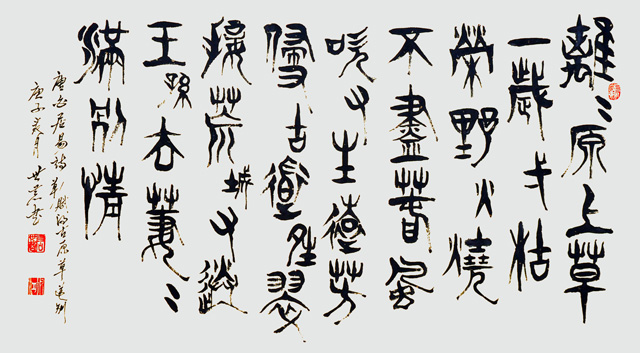 離〻原上草
一歲弌枯
榮野火燒
不盡春風
吹又生遠芳
侵古道晴翠
接荒城又送
王孫去萋〻
滿別情
唐白居易詩賦得古原草送別
庚子月世書